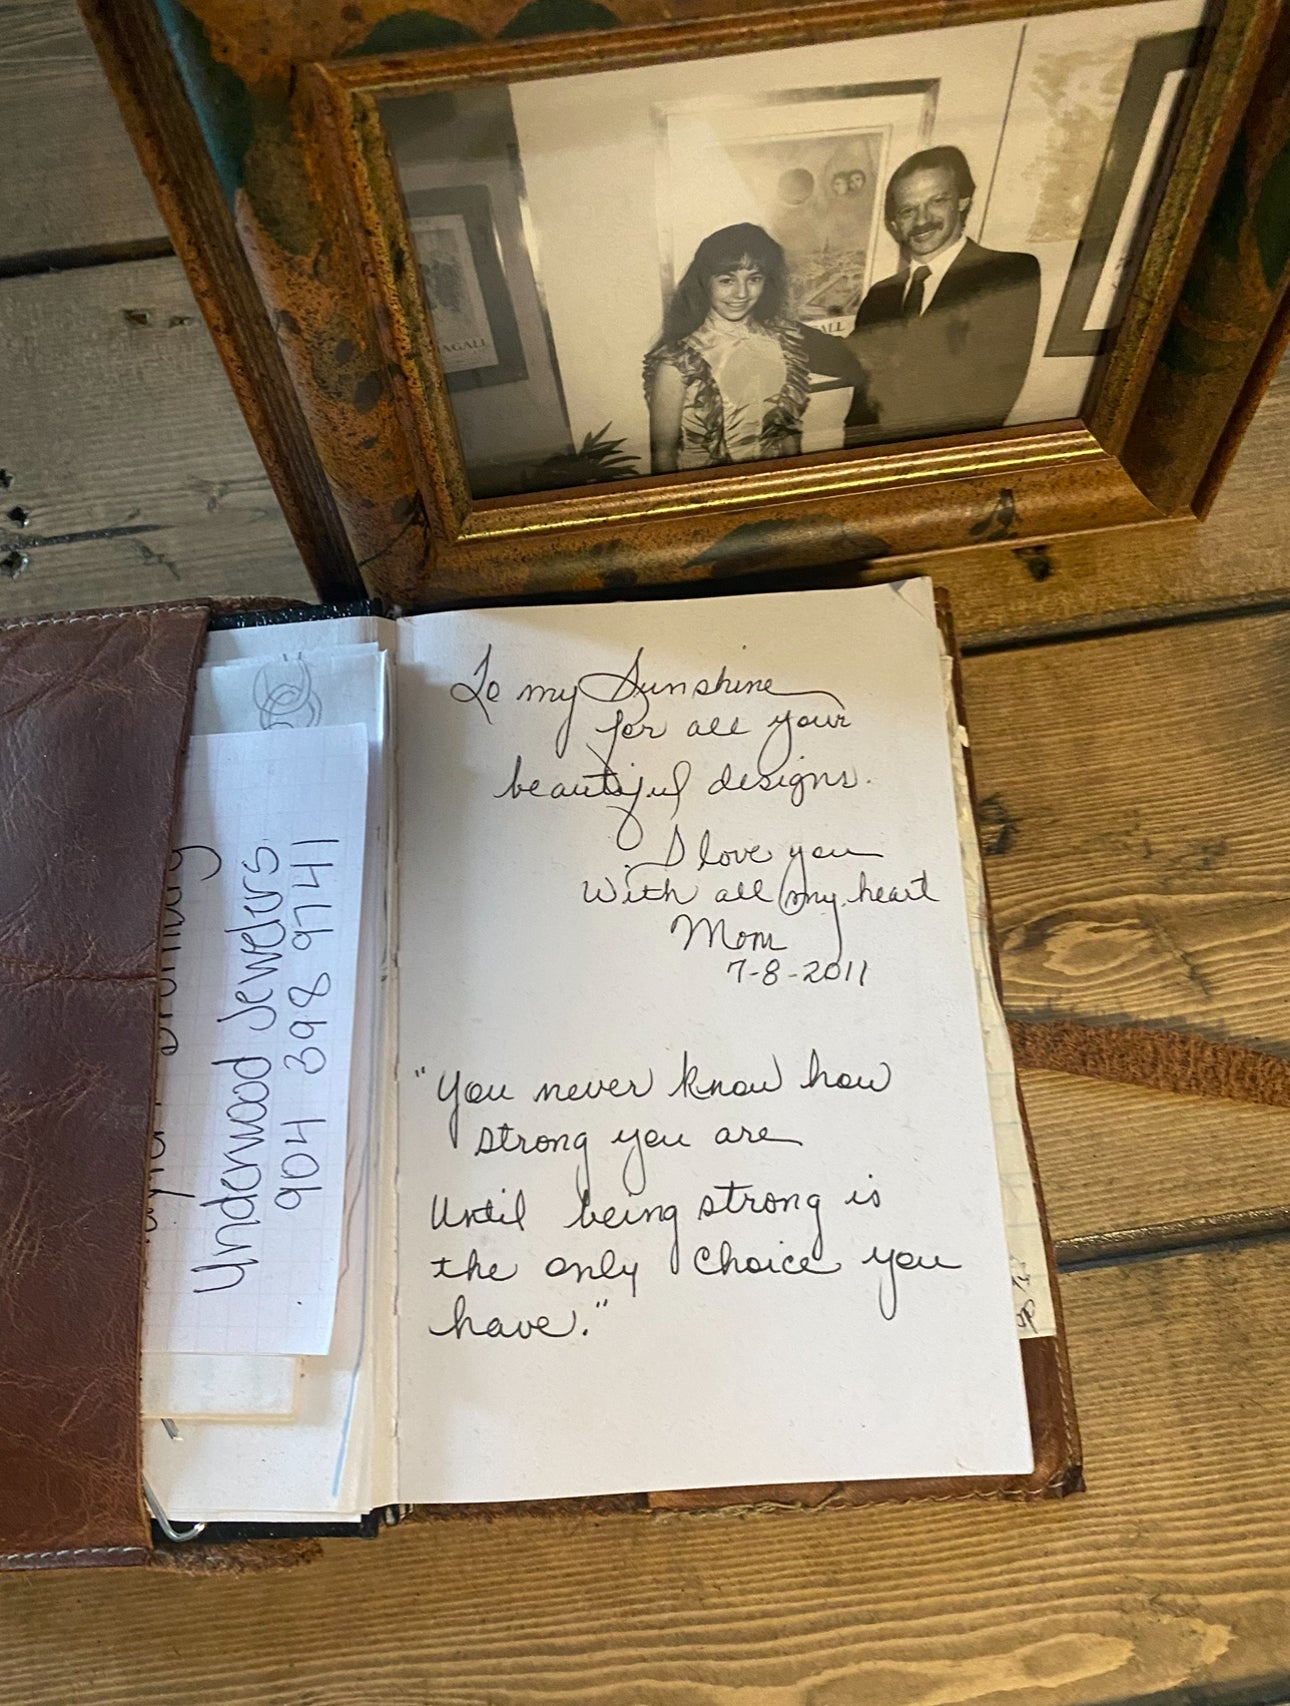 AGALL
ALL
To my Sunshine
for all your
beautiful designs.
I love you
With all my heart
Mom
7-8-2011
"You never know how
strong you are
Until being strong is
the only choice you
have."
Underwood Jewelers
904 398 9741